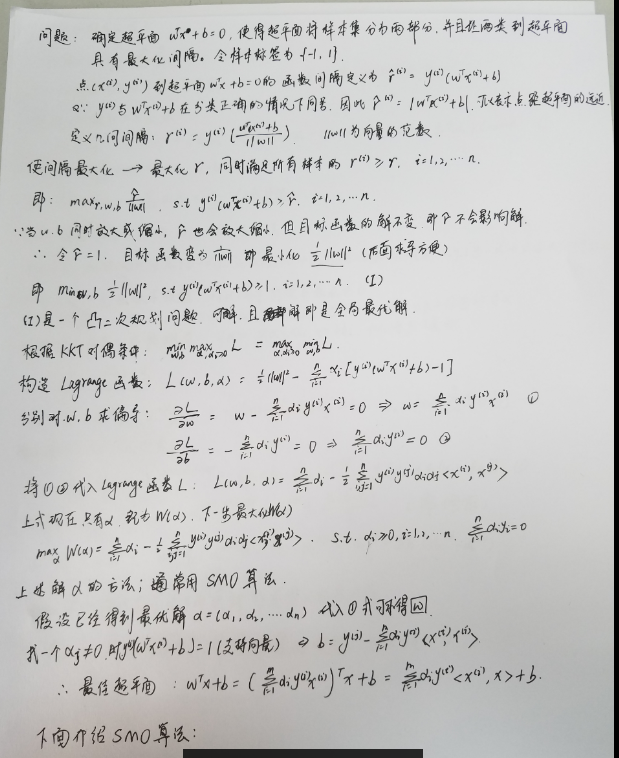 问题: 确定超平面 wᵀx+b=0, 使得超平面将样本集分为两部分, 并且使两类到超平面
具有最大化间隔。令样本标签为{-1, 1}.
点(x⁽ⁱ⁾, y⁽ⁱ⁾)到超平面wᵀx+b=0的函数间隔定义为 r̂⁽ⁱ⁾ = y⁽ⁱ⁾(wᵀx⁽ⁱ⁾+b)
∵ y⁽ⁱ⁾与wᵀx⁽ⁱ⁾+b在分类正确的情况下同号, 因此 r̂⁽ⁱ⁾ = |wᵀx⁽ⁱ⁾+b|. 可以表示点距超平面的远近
定义几何间隔: r⁽ⁱ⁾ = y⁽ⁱ⁾((wᵀx⁽ⁱ⁾+b)/||w||). ||w||为向量的范数.
使间隔最大化 → 最大化 r, 同时满足所有样本的 r⁽ⁱ⁾ ≥ r. i=1,2,...n.
即: max r,w,b r̂/||w|| . s.t y⁽ⁱ⁾(wᵀx⁽ⁱ⁾+b) ≥ r̂. i=1,2,...n.
∵ 当w.b同时放大或缩小, r̂也会放大缩小, 但目标函数的解不变, 即r̂不会影响解.
∴ 令r̂=1. 目标函数变为 1/||w|| 即最小化 ½||w||² (后面求导方便)
即 min w,b ½||w||², s.t y⁽ⁱ⁾(wᵀx⁽ⁱ⁾+b) ≥ 1. i=1,2,...n. (I)
(I)是一个凸二次规划问题. 可解, 且解即是全局最优解.
根据KKT对偶条件: min w,b max α,αi≥0 L = max α,αi≥0 min w,b L.
构造Lagrange函数: L(w,b,α) = ½||w||² - Σⁿᵢ₌₁ αi[y⁽ⁱ⁾(wᵀx⁽ⁱ⁾+b)-1]
分别对w,b求偏导: ∂L/∂w = w - Σⁿᵢ₌₁ αi y⁽ⁱ⁾x⁽ⁱ⁾ = 0 ⇒ w = Σⁿᵢ₌₁ αi y⁽ⁱ⁾x⁽ⁱ⁾ ①
∂L/∂b = - Σⁿᵢ₌₁ αi y⁽ⁱ⁾ = 0 ⇒ Σⁿᵢ₌₁ αi y⁽ⁱ⁾ = 0 ②
将①②代入Lagrange函数L: L(w,b,α) = Σⁿᵢ₌₁ αi - ½ Σⁿᵢ,ⱼ₌₁ y⁽ⁱ⁾y⁽ʲ⁾αiαj<x⁽ⁱ⁾, x⁽ʲ⁾>
上式现在只有α, 记为W(α). 下一步最大化W(α)
max α W(α) = Σⁿᵢ₌₁ αi - ½ Σⁿᵢ,ⱼ₌₁ y⁽ⁱ⁾y⁽ʲ⁾αiαj<x⁽ⁱ⁾, x⁽ʲ⁾>. s.t. αi≥0, i=1,2,...n. Σⁿᵢ₌₁ αiyi=0
上述解α的方法; 通常用SMO算法.
假设已经得到最优解 α=(α₁, α₂, ... αn) 代入①式可求得w.
找一个αj≠0, 时y⁽ʲ⁾(wᵀx⁽ʲ⁾+b)=1(支持向量) ⇒ b = y⁽ʲ⁾ - Σⁿᵢ₌₁ αi y⁽ⁱ⁾<x⁽ⁱ⁾, x⁽ʲ⁾>
∴ 最佳超平面: wᵀx+b = (Σᵐᵢ₌₁ αi y⁽ⁱ⁾x⁽ⁱ⁾)ᵀx + b = Σᵐᵢ₌₁ αi y⁽ⁱ⁾<x⁽ⁱ⁾, x> + b.
下面介绍SMO算法: